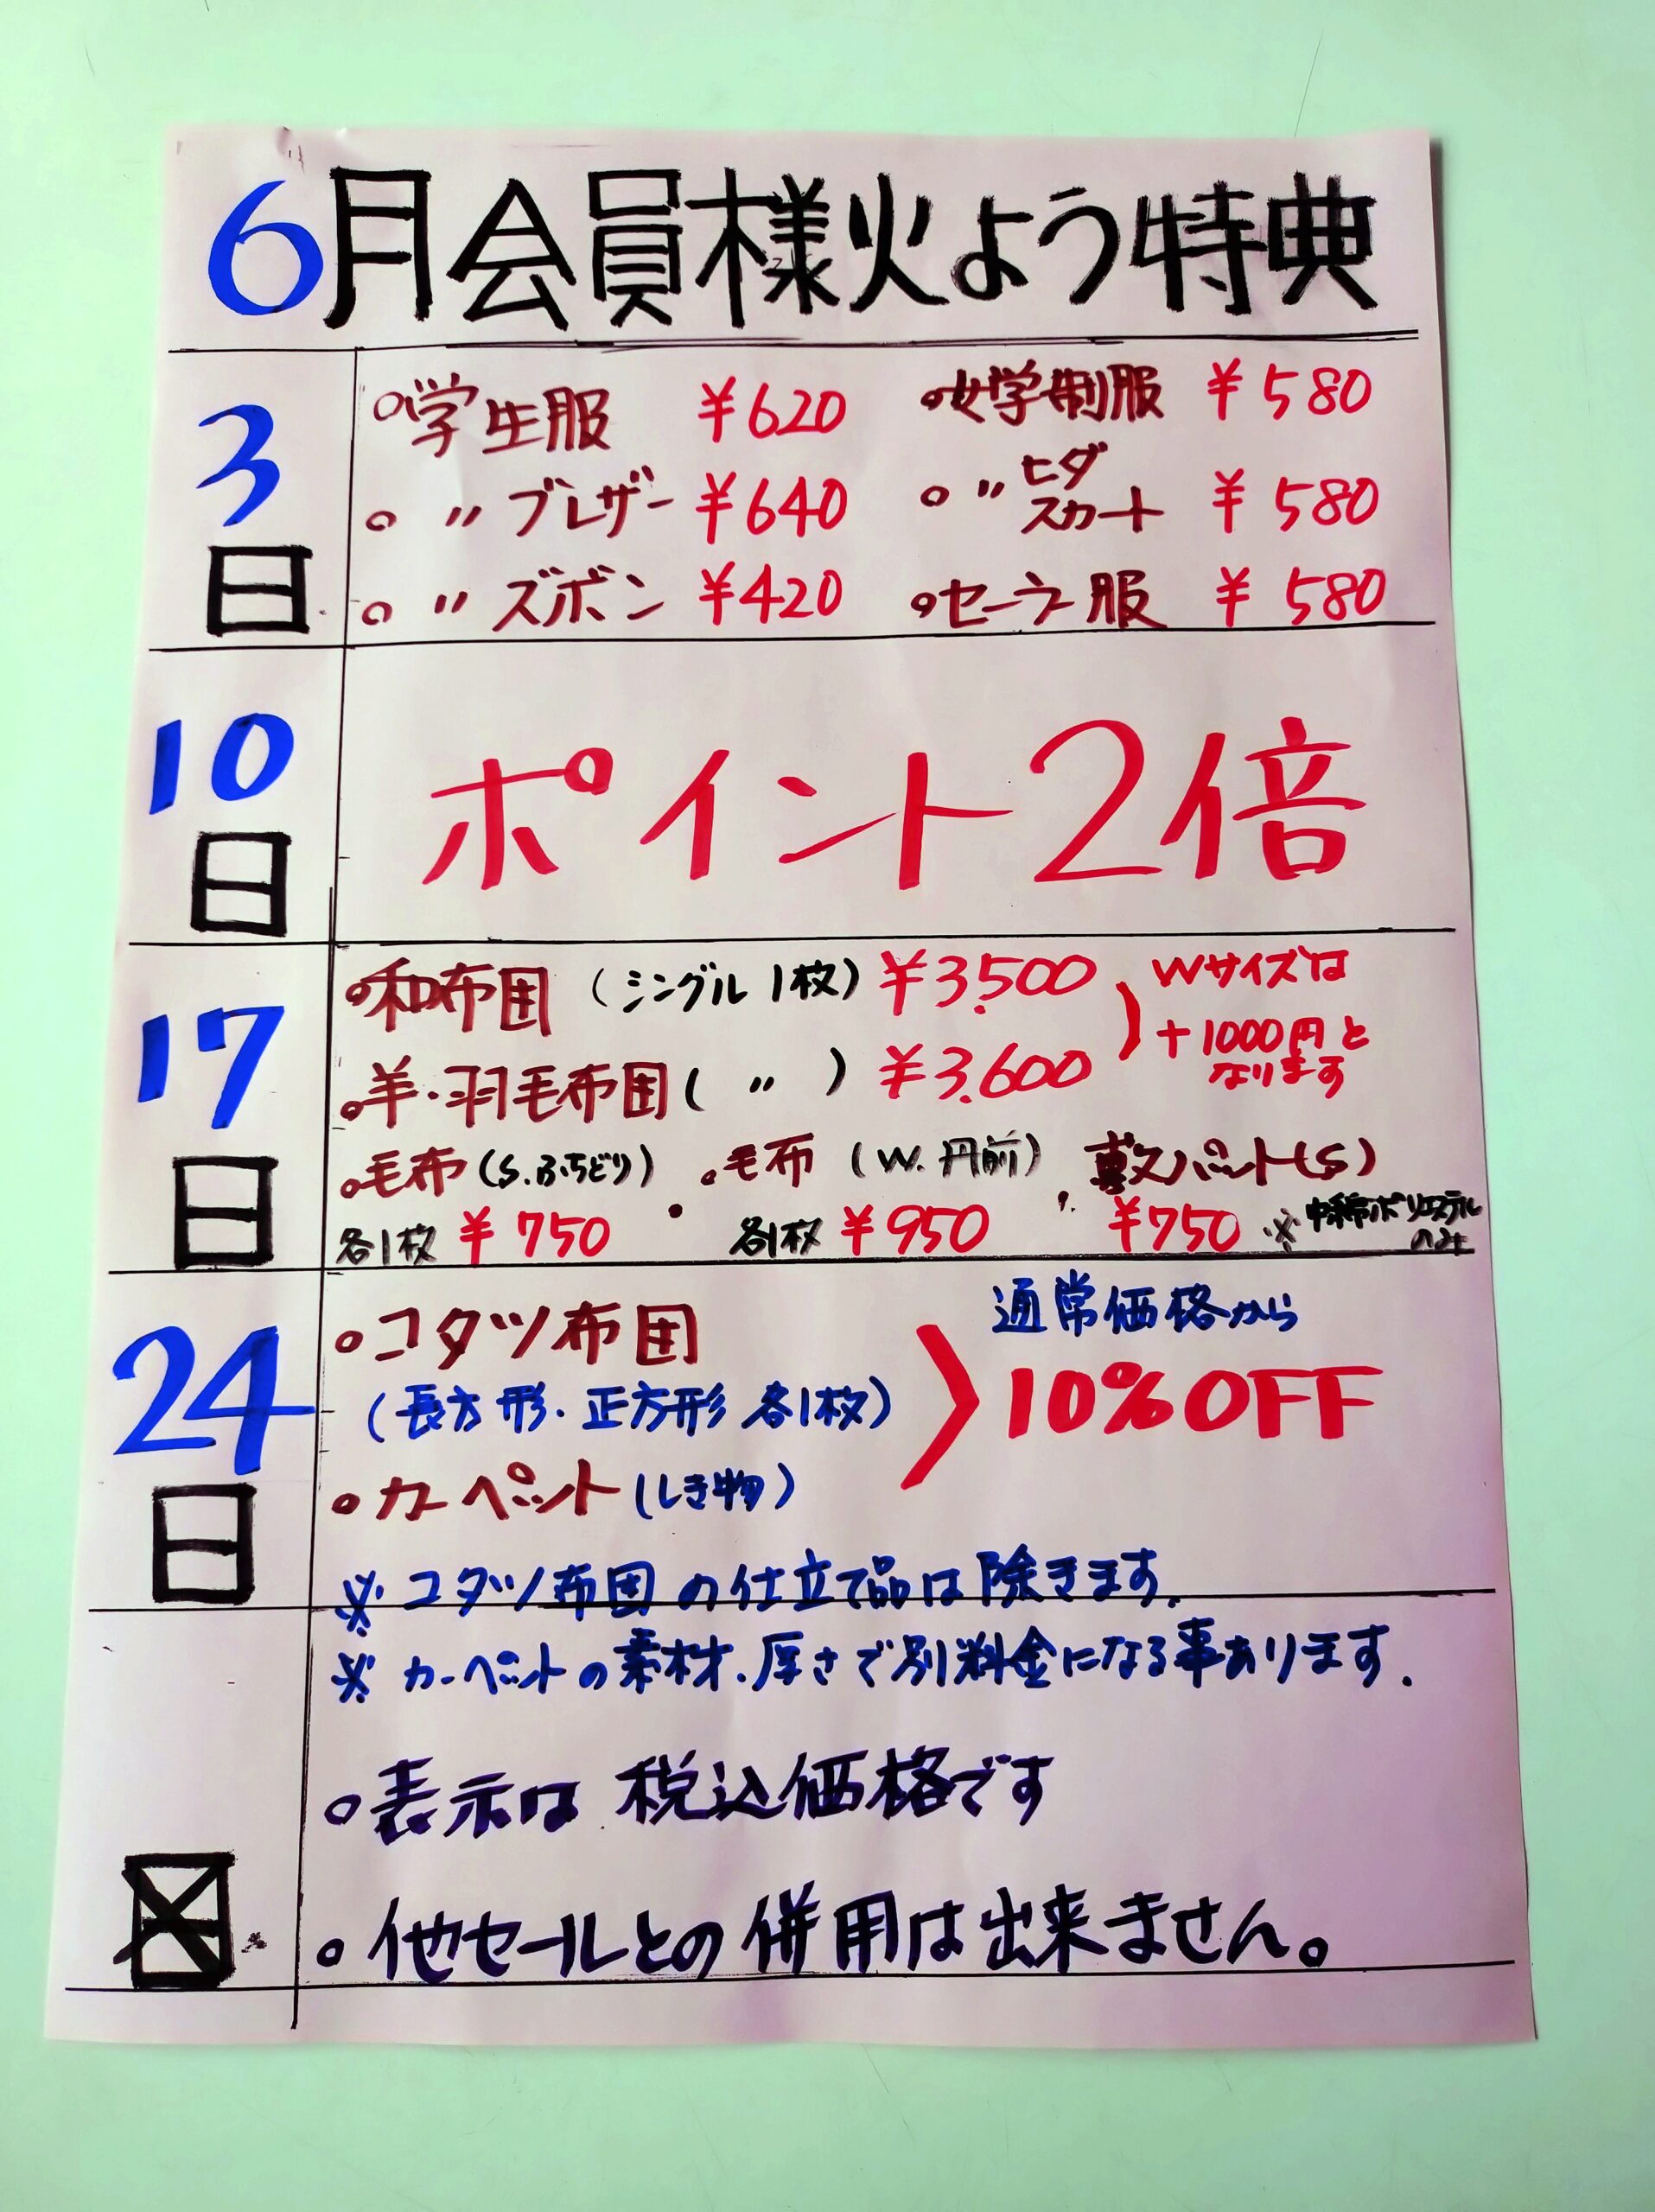 6月会員様火よう特典
3日
○学生服 ¥620 ○女学制服 ¥580
○ 〃 ブレザー ¥640 ○ 〃 ヒダスカート ¥580
○ 〃 ズボン ¥420 ○セーラー服 ¥580
10日
ポイント2倍
17日
○和布団 (シングル1枚) ¥3,500 Wサイズは
○羊・羽毛布団 ( 〃 ) ¥3,600 +1000円と
なります
○毛布 (S.ふちどり) ○毛布 (W.丹前) 敷パット(S)
各1枚 ¥750 各1枚 ¥950 ¥750 ※中綿ポリエステル
のみ
24日
○コタツ布団 通常価格から
(長方形・正方形 各1枚) 10%OFF
○カーペット (しき物)
※コタツ布団の仕立て品は除きます。
※カーペットの素材、厚さで別料金になる事あります.
○表示は税込価格です
○他セールとの併用は出来ません。